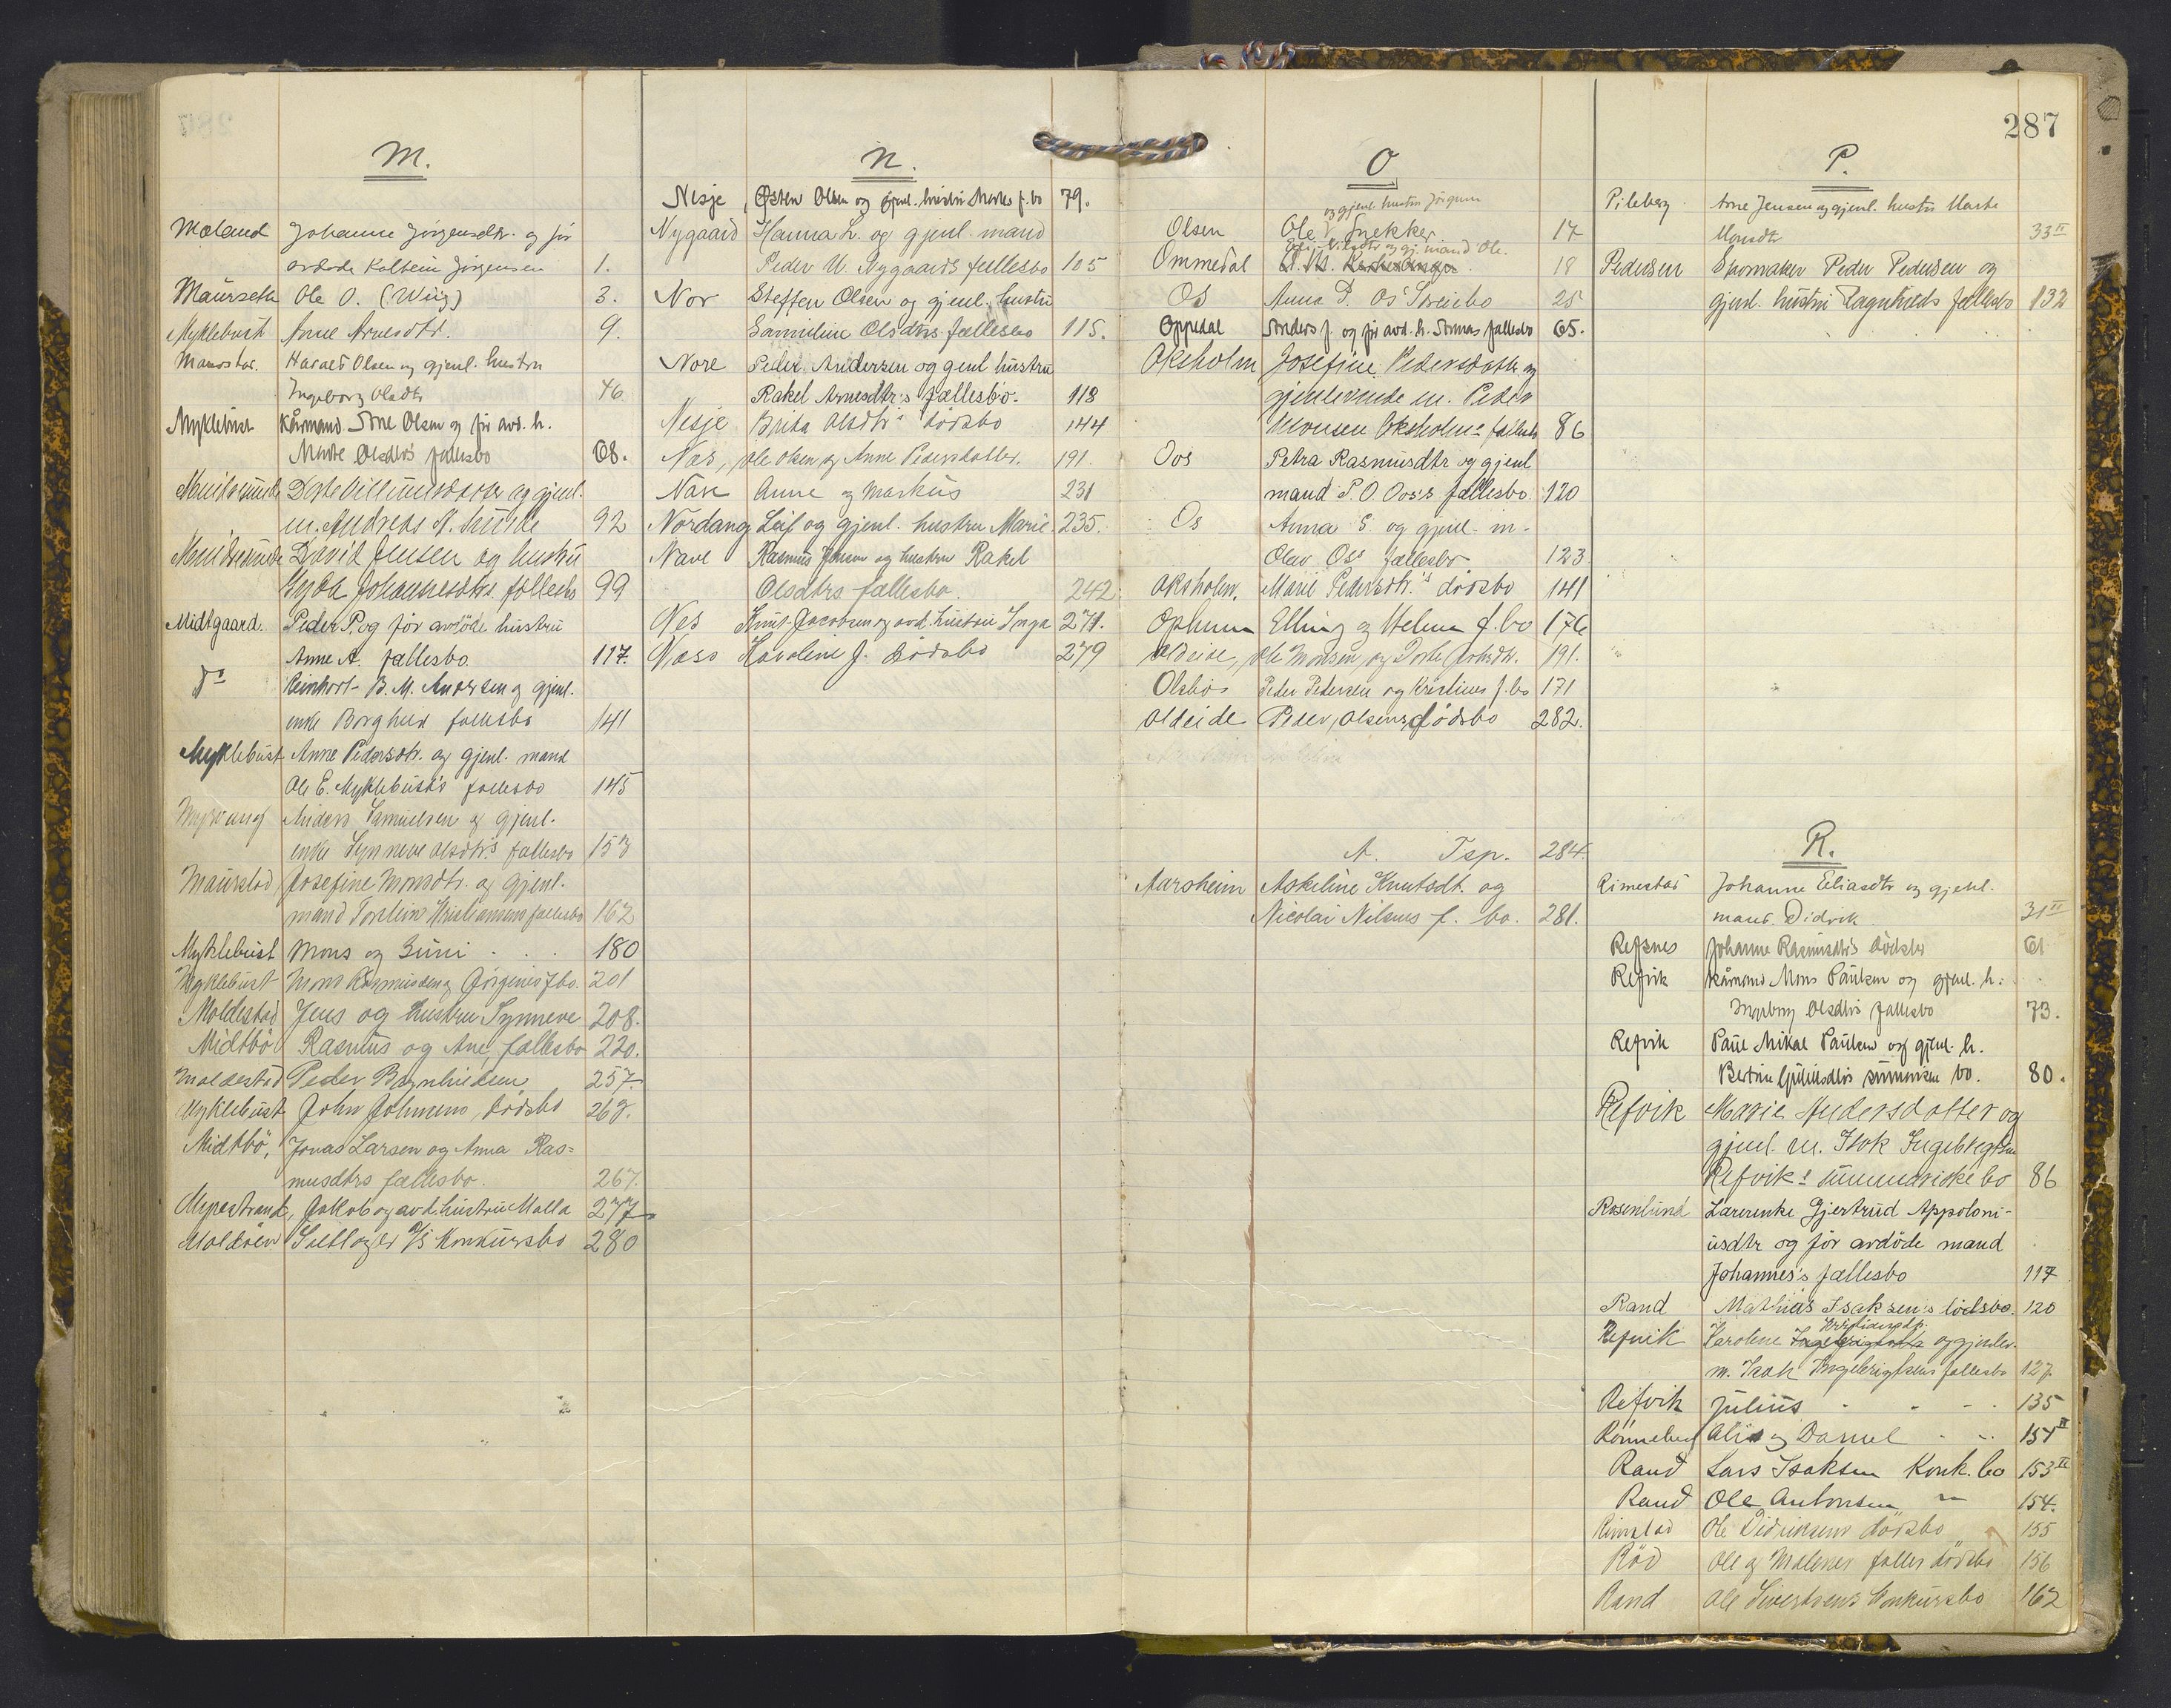 287
M.
Mæland Johanne Jörgensdtr. og för
avdöde Kolbein Jörgensen 1.
Maurseth Ole O. (Wiig) 3.
Myklebust Anne Arnesdtr. 9.
Harald Olsen og gjenl. hustru
Ingeborg Olsdtr 46
Myklebust Kårmand Arne Olsen og för avd. h.
Marte Olsdtr's fællesbo 68.
Dorte Villumsdatter og gjenl.
m. Andreas N. 92
David Jensen og hustru
Gyda Johannesdtrs fællesbo 99
Midtgaard. Peder P. og för avdöde hustru
Anne A. fællesbo. 117.
Do Reinhart B. M. Andersen og gjenl.
enke Borghild fællesbo 141
Myklebust Anne Pedersdtr. og gjenl. mand
Ole E. Myklebust's fællesbo 145
Anders Samuelsen og gjenl.
enke Synneve Olsdtr's fællesbo 153
Maurstad Josefine Monsdtr. og gjenl.
mand Torstein Kristiansens fællesbo 162
Myklebust Mons og Guni 180
Myklebust Mons Rasmussen og Jörgines f.bo. 201
Moldestad Jens og hustru Synneve 208.
Midtbö Rasmus og Ane, fællesbo 220.
Moldestad Peder 257.
Myklebust John Johnsens dödsbo 263.
Midtbö, Jonas Larsen og Anna Ras=
musdtrs fællesbo. 267.
Myrestrand, Jakob og avd. hustru Malla 277
Maldöen Sildolje A/S Konkursbo 280
N.
Nesje Østen Olsen og gjenl. hustru Martes f.bo 79.
Nygaard Hanna L. og gjenl. mand
Peder U. Nygaards fællesbo 105
Nor Steffen Olsen og gjenl. hustru
Samuline Olsdtrs fællesbo 115.
Nore Peder Andersen og genl hustru
Rakel Arnesdtr:s fællesbo. 118
Nesje Brita Olsdtr's dödsbo 144
Nås, Ole Olsen og Anne Pedersdatter. 191.
Nave Anne og Markus 231
Nordang Leif og gjenl. hustru Marie. 235.
Nave Rasmus Jonsen og hustru Rakel
Olsdtrs fællesbo. 242
Nes Knut Jacobsen og avd. hustru Inga 271.
Næss Karoline J. dödsbo 279
O
og gjenl. hustru Jörgine
Olsen Ole Snekker 17
og gj. mand Ole.
Ommedal 18
Os Anna P. Os' 25
Oppedal Anders J. og för avd. h. Annas fællesbo 65.
Oksholm Josefine Pedersdatter og
gjenlevende m. Peder
Monsen Oksholms fællesbo 86
Oos Petra Rasmusdtr og gjenl
mand P. O. Oos's fællesbo 120
Os Anna S. og gjenl. m.
Olav Os's fællesbo 123
Oksholm. Marie Pedersdtr.'s dödsbo 141
Ophuun Elling og Helene f.bo 176
Aldeide, Ole Monsen og Dorte 191.
Olsbö Peder Pedersen og Kristines f.bo 171
Oldeide Peder Olsens dödsbo 282.
A. Tsp. 284.
Aarsheim Askeline Knutsdt. og
Nicolai Nilsens f. bo. 281.
P.
Pileberg Arne Jensen og gjenl. hustru Marte
Monsdtr 33 II
Pedersen Skomaker Peder Pedersen og
gjenl. hustru Ragnhilds fællesbo 132
R.
Rimestad Johanne Eliasdtr og gjenl.
mand. Didrik 31 II
Refsnes Johanne Rasmusdtr's dödsbo 61
Refvik Kårmand Mons Paulsen og gjenl. h:
Ingeborg Olsdtrs fællesbo 73.
Refvik Paul Mikal Paulsen og gjenl. h.
Bertine Juliusdtrs summariske bo. 80.
Refvik Marie Andersdatter og
gjenl. m. Isak Ingebrigtsen
Refviks summariske bo 86
Rosenlund Lærerenke Gjertrud Appoloni-
usdtr og för avdöde mand
Johannes's fællesbo 117
Rand Mathias Isaksen:s dödsbo. 120
Kristiansdtr.
Refvik Karoline Ingebrigtsdtr og gjenlev.
m. Isak Ingebrigtsens fællesbo 127
Refvik Julius 135
Alis og Daniel 151 II
Rand Lars Isaksen Konk. bo 153 II
Rand Ole Antonsen " 154.
Rimstad Ole Didriksens dödsbo 155
Röd Ole og Malenes felles dödsbo 156
Rand Ole Sivertsens Konkursbo 162